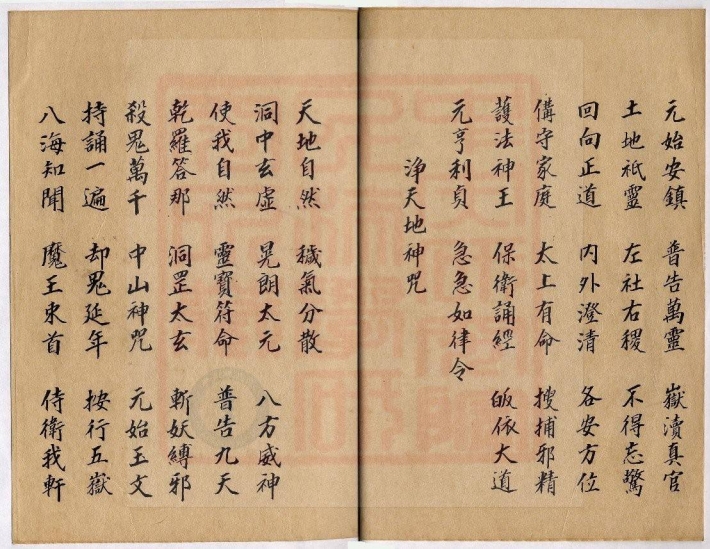 元始安鎮 普告萬靈 嶽瀆真官
土地祇靈 左社右稷 不得忘驚
回向正道 內外澄清 各安方位
備守家庭 太上有命 搜捕邪精
護法神王 保衛誦經 皈依大道
元亨利貞 急急如律令
淨天地神咒
天地自然 穢氣分散
洞中玄虛 晃朗太元 八方威神
使我自然 靈寶符命 普告九天
乾羅答那 洞罡太玄 斬妖縛邪
殺鬼萬千 中山神咒 元始玉文
持誦一遍 却鬼延年 按行五嶽
八海知聞 魔王束首 侍衛我軒